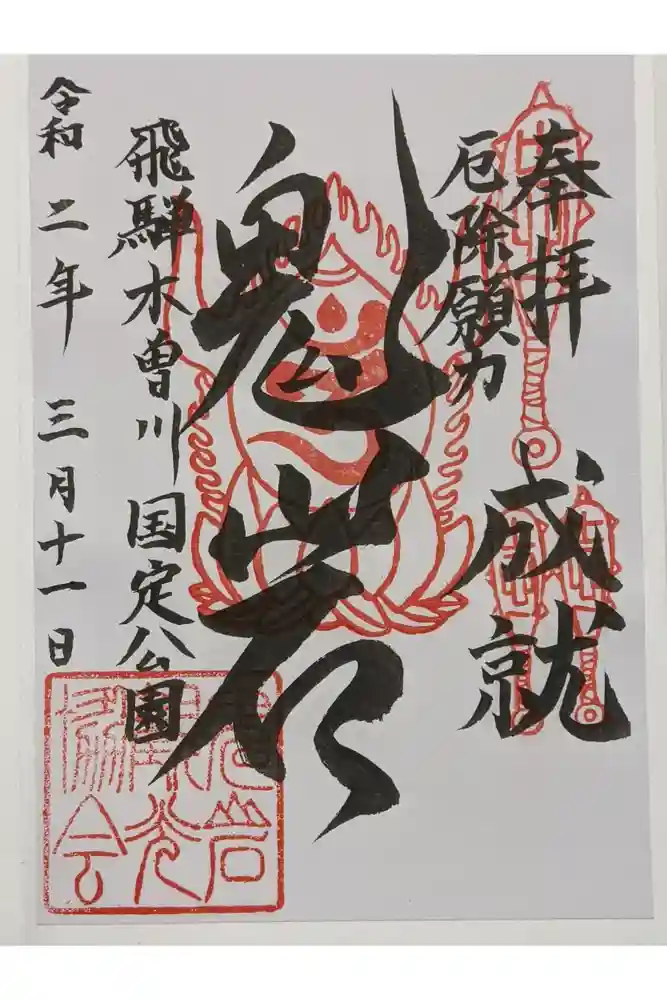 奉拝
厄除願力
成就
鬼岩
飛騨木曽川国定公園
令和二年三月十一日
鬼岩観光協会